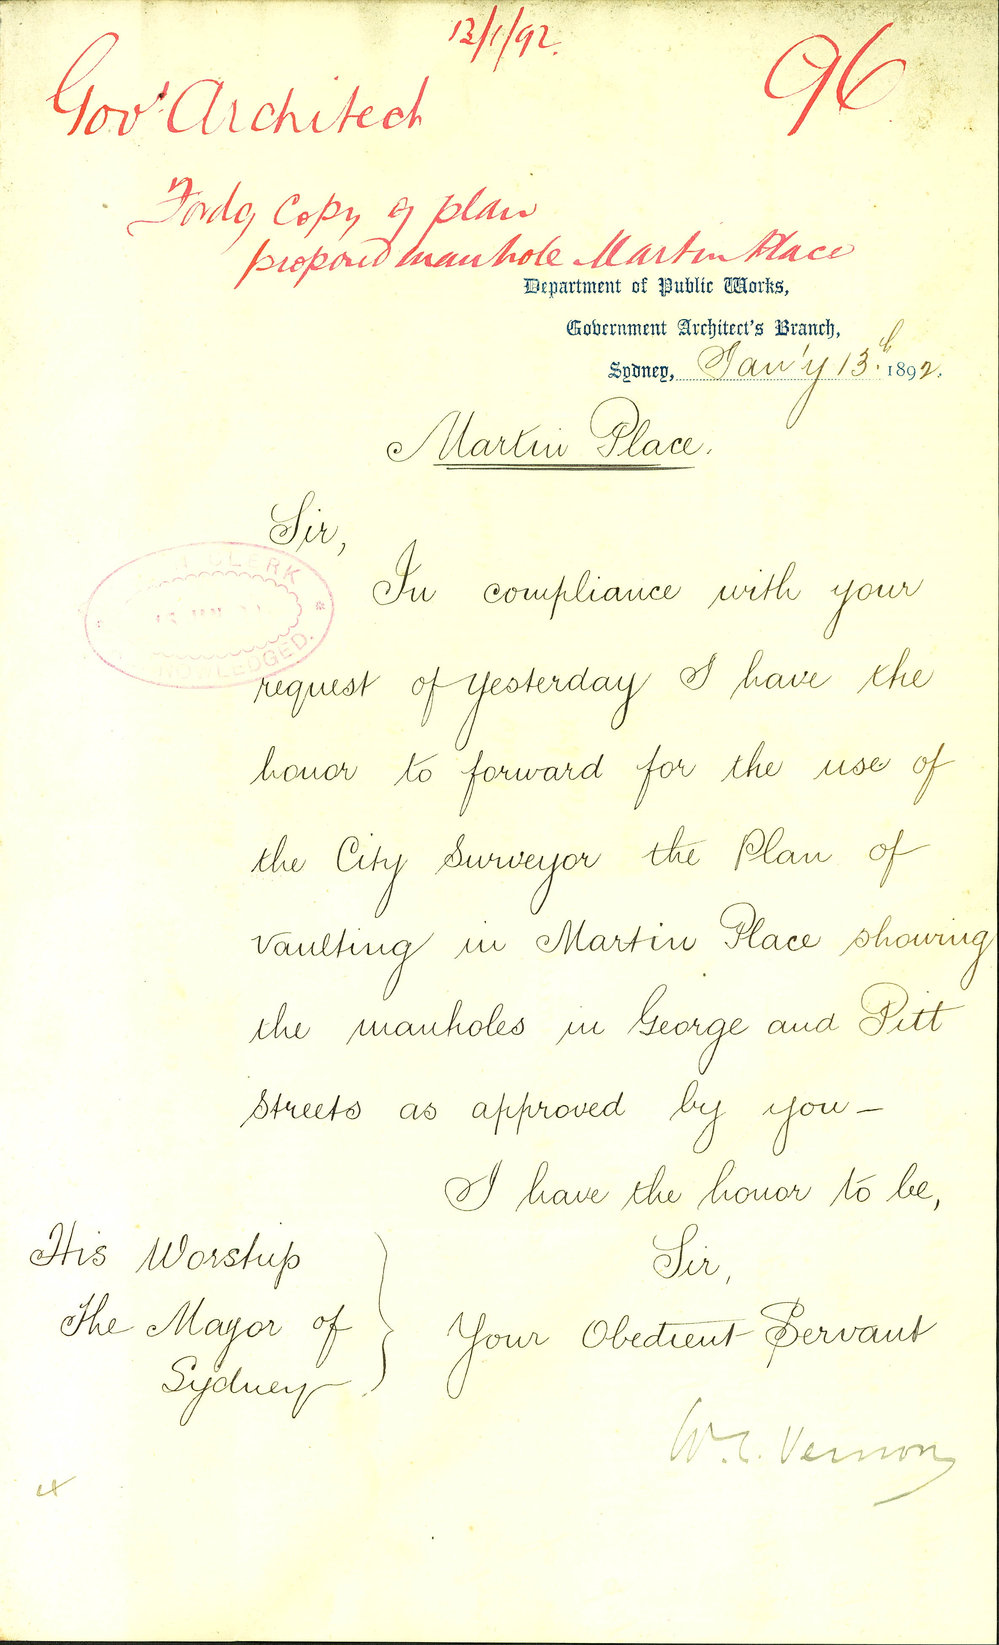 13/1/92.
96
Govt Architect
Fordg Copy of plan
proposed manhole Martin Place
Department of Public Works,
Government Architect's Branch,
Sydney, Jan'y 13th 1892.
Martin Place.
Sir,
CLERK
In compliance with your
request of yesterday I have the
honor to forward for the use of
the City Surveyor the Plan of
vaulting in Martin Place showing
the manholes in George and Pitt
Streets as approved by you —
I have the honor to be,
Sir,
Your Obedient Servant
His Worship
The Mayor of
Sydney
W. L. Vernon